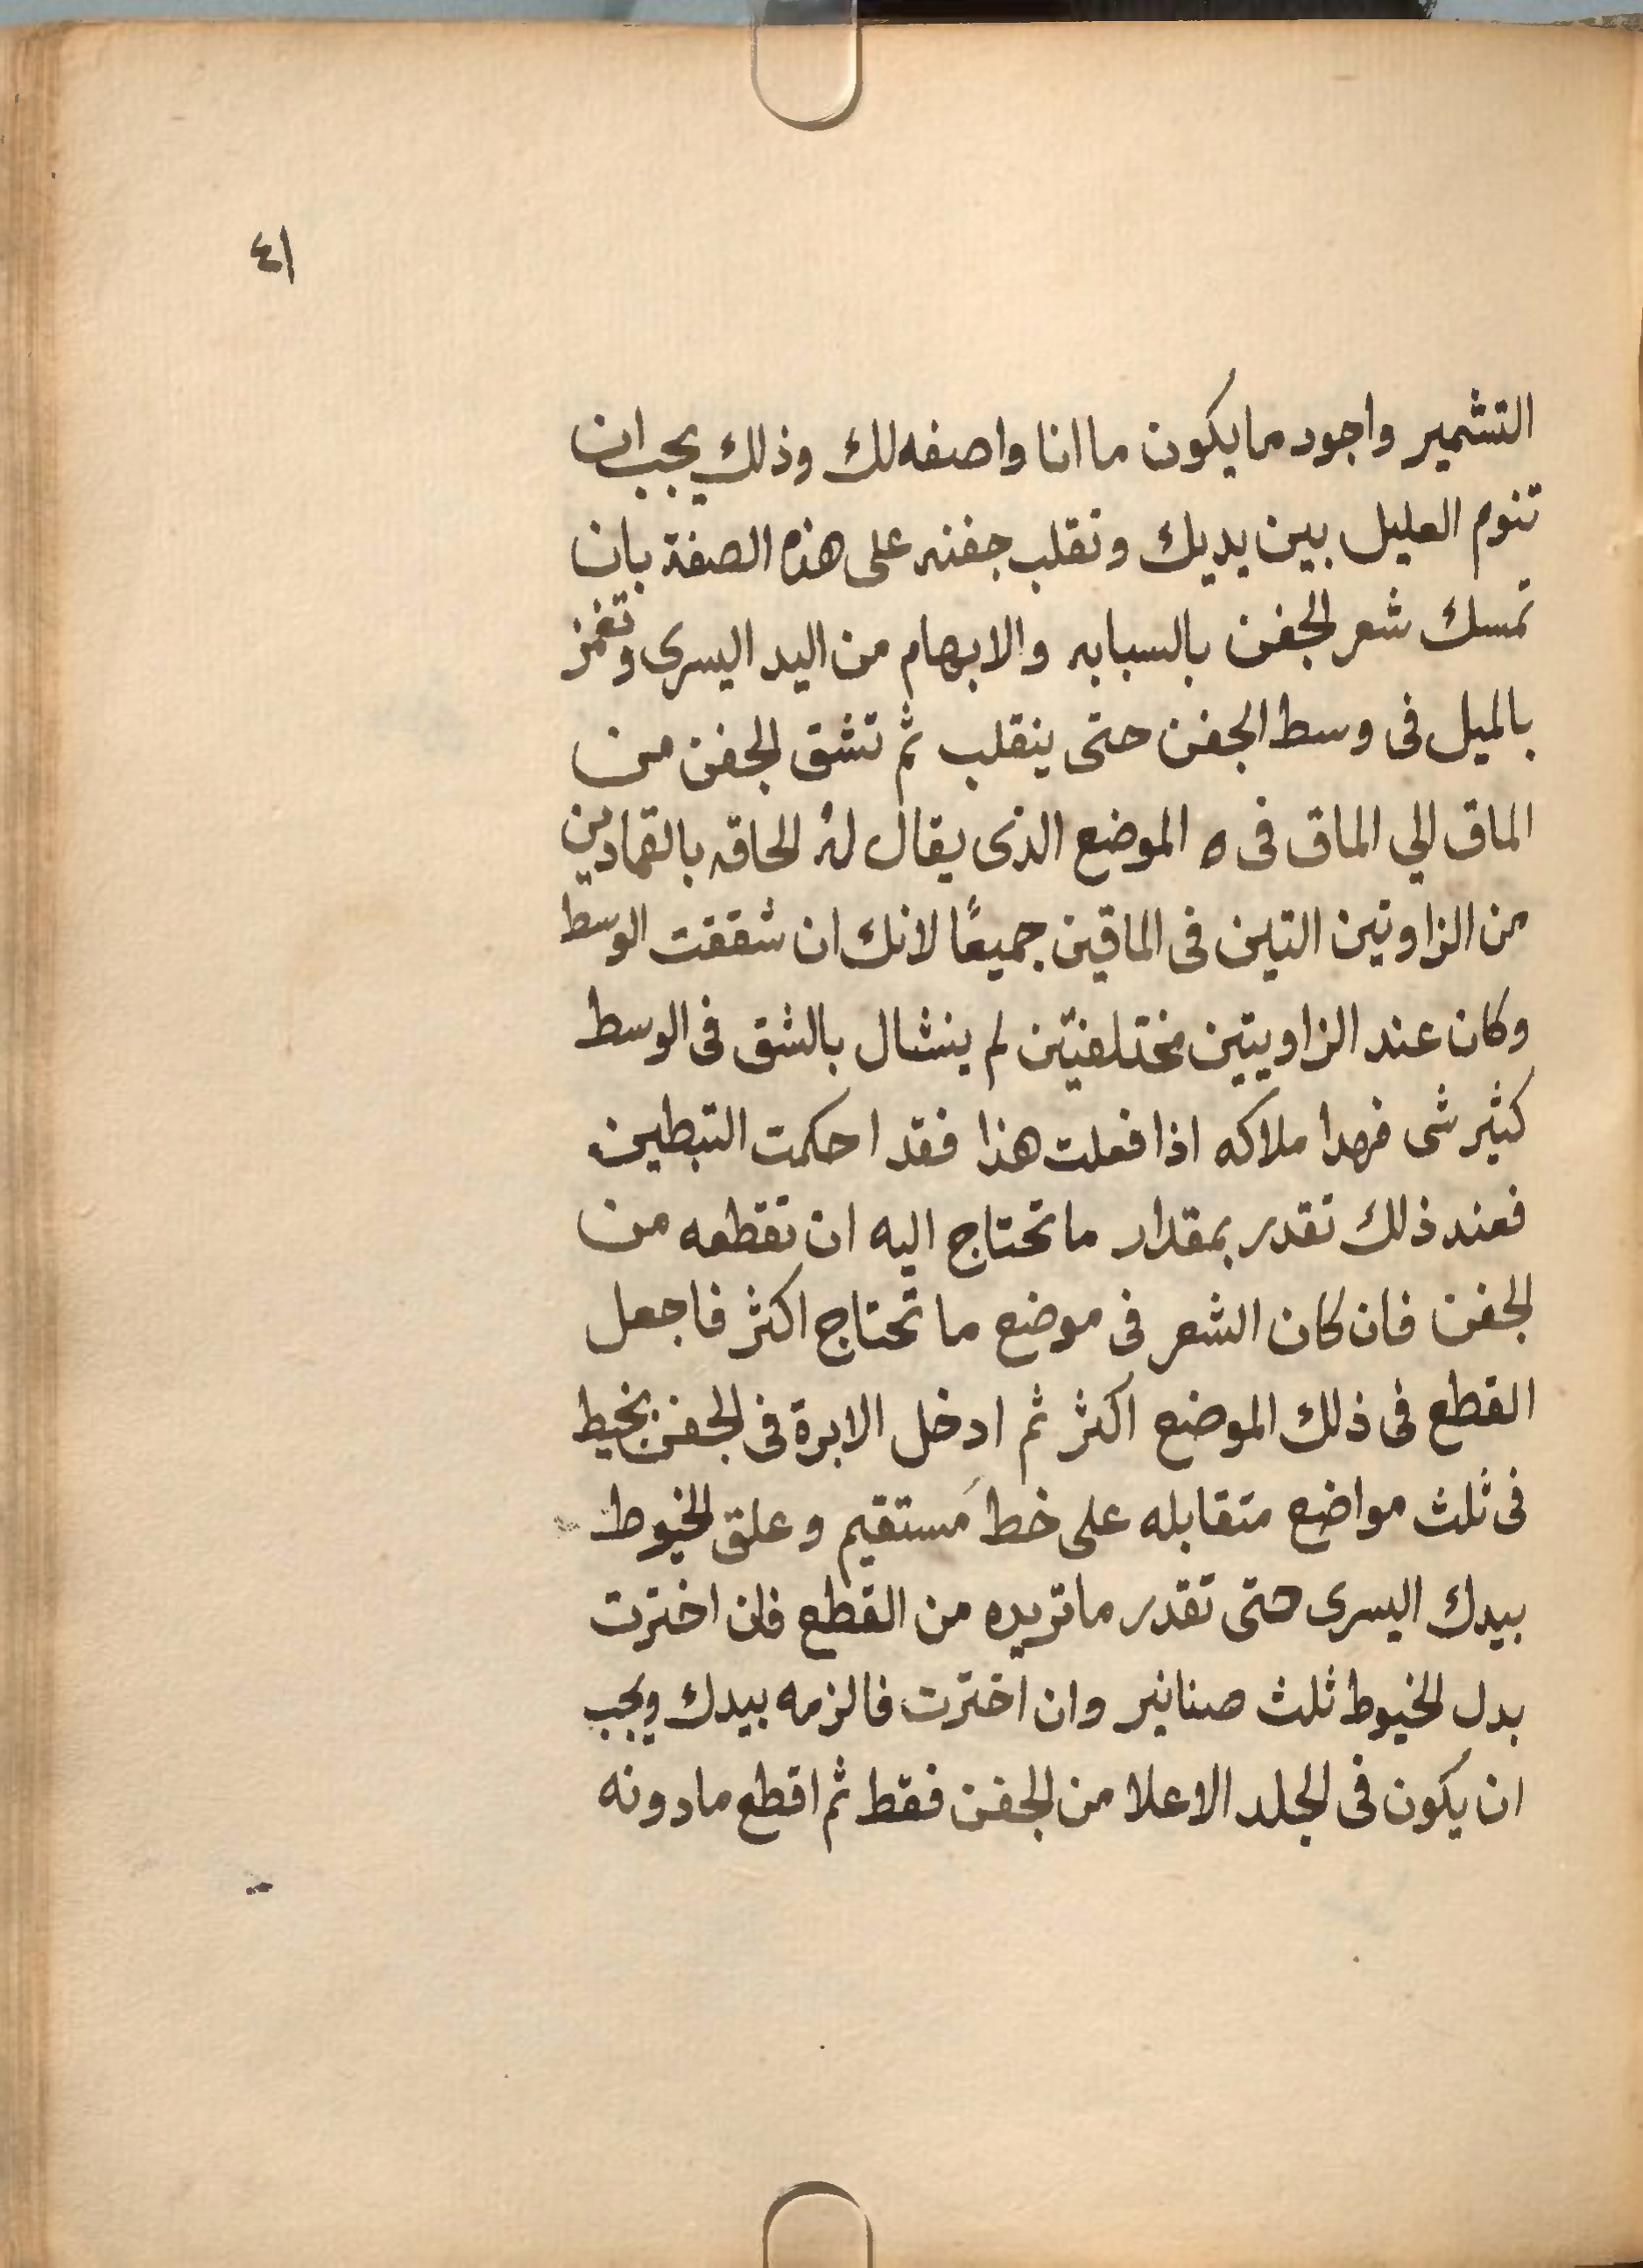 ٤١
التشمير واجود ما يكون ما انا واصفه لك وذلك يجب ان
تنوم العليل بين يديك وتقلب جفنه على هذه الصفة بان
تمسك شعر الجفن بالسبابه والابهام من اليد اليسرى وتغمز
بالميل فى وسط الجفن حتى ينقلب ثم تشق الجفن من
الماق الي الماق فى ه الموضع الذى يقال له الحاقه بالقمادين
من الزاوتين التين فى الماقين جميعًا لانك ان شققت الوسط
وكان عند الزاويتين مختلفتين لم ينشال بالشق فى الوسط
كثير شى فهدا ملاكه اذا فعلت هذا فقد احكمت التبطين
فعند ذلك تقدر بمقدار ما تحتاج اليه ان تقطعه من
الجفن فان كان الشعر فى موضع ما تحتاج اكثر فاجعل
القطع فى ذلك الموضع اكثر ثم ادخل الابرة فى الجفن بخيط
فى ثلث مواضع متقابله على خط مَستقيم وعلق الخيوط
بيدك اليسرى حتى تقدر ما تريده من القطع فان اخترت
بدل الخيوط ثلث صنانير وان اخترت فالزمه بيدك ويجب
ان يكون فى الجلد الاعلا من الجفن فقط ثم اقطع ما دونه